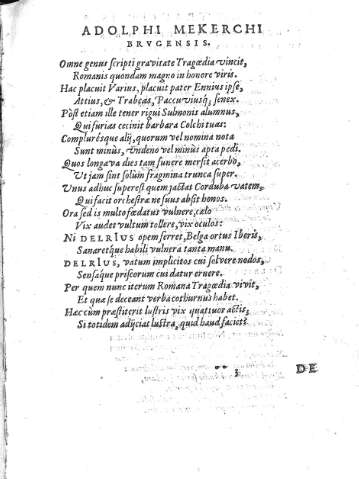 ADOLPHI MEKERCHI
BRVGENSIS.
Omne genus scripti gravitate Tragœdia vincit,
Romanis quondam magno in honore viris.
Hac placuit Varius, placuit pater Ennius ipse,
Attius, & Trabeas, Paccuviusq; senex.
Pòst etiam ille tener rigui Sulmonis alumnus,
Qui furias cecinit barbara Colchi tuas:
Compluresque alij, quorum vel nomina nota
Sunt minùs, undeno vel minus apta pedi.
Quos longæva dies tam funere mersit acerbo,
Ut jam sint solùm fragmina trunca super.
Unus adhuc superest quem jactat Corduba vatem,
Qui facit orchestræ ne suus absit honos.
Ora sed is multo fœdatus vulnere, cælo
Vix audet vultum tollere, vix oculos:
Ni DELRIUS opem ferret, Belga ortus Iberis,
Sanaretque habili vulnera tanta manu.
DELRIUS, vatum implicitos cui solvere nodos,
Sensaque priscorum cui datur eruere.
Per quem nunc iterum Romana Tragœdia vivit,
Et quæ se deceant verba cothurnus habet.
Hæc cùm præstiterit lustris vix quattuor actis,
Si totidem adijcias lustra, quid haud faciet?
3
DE